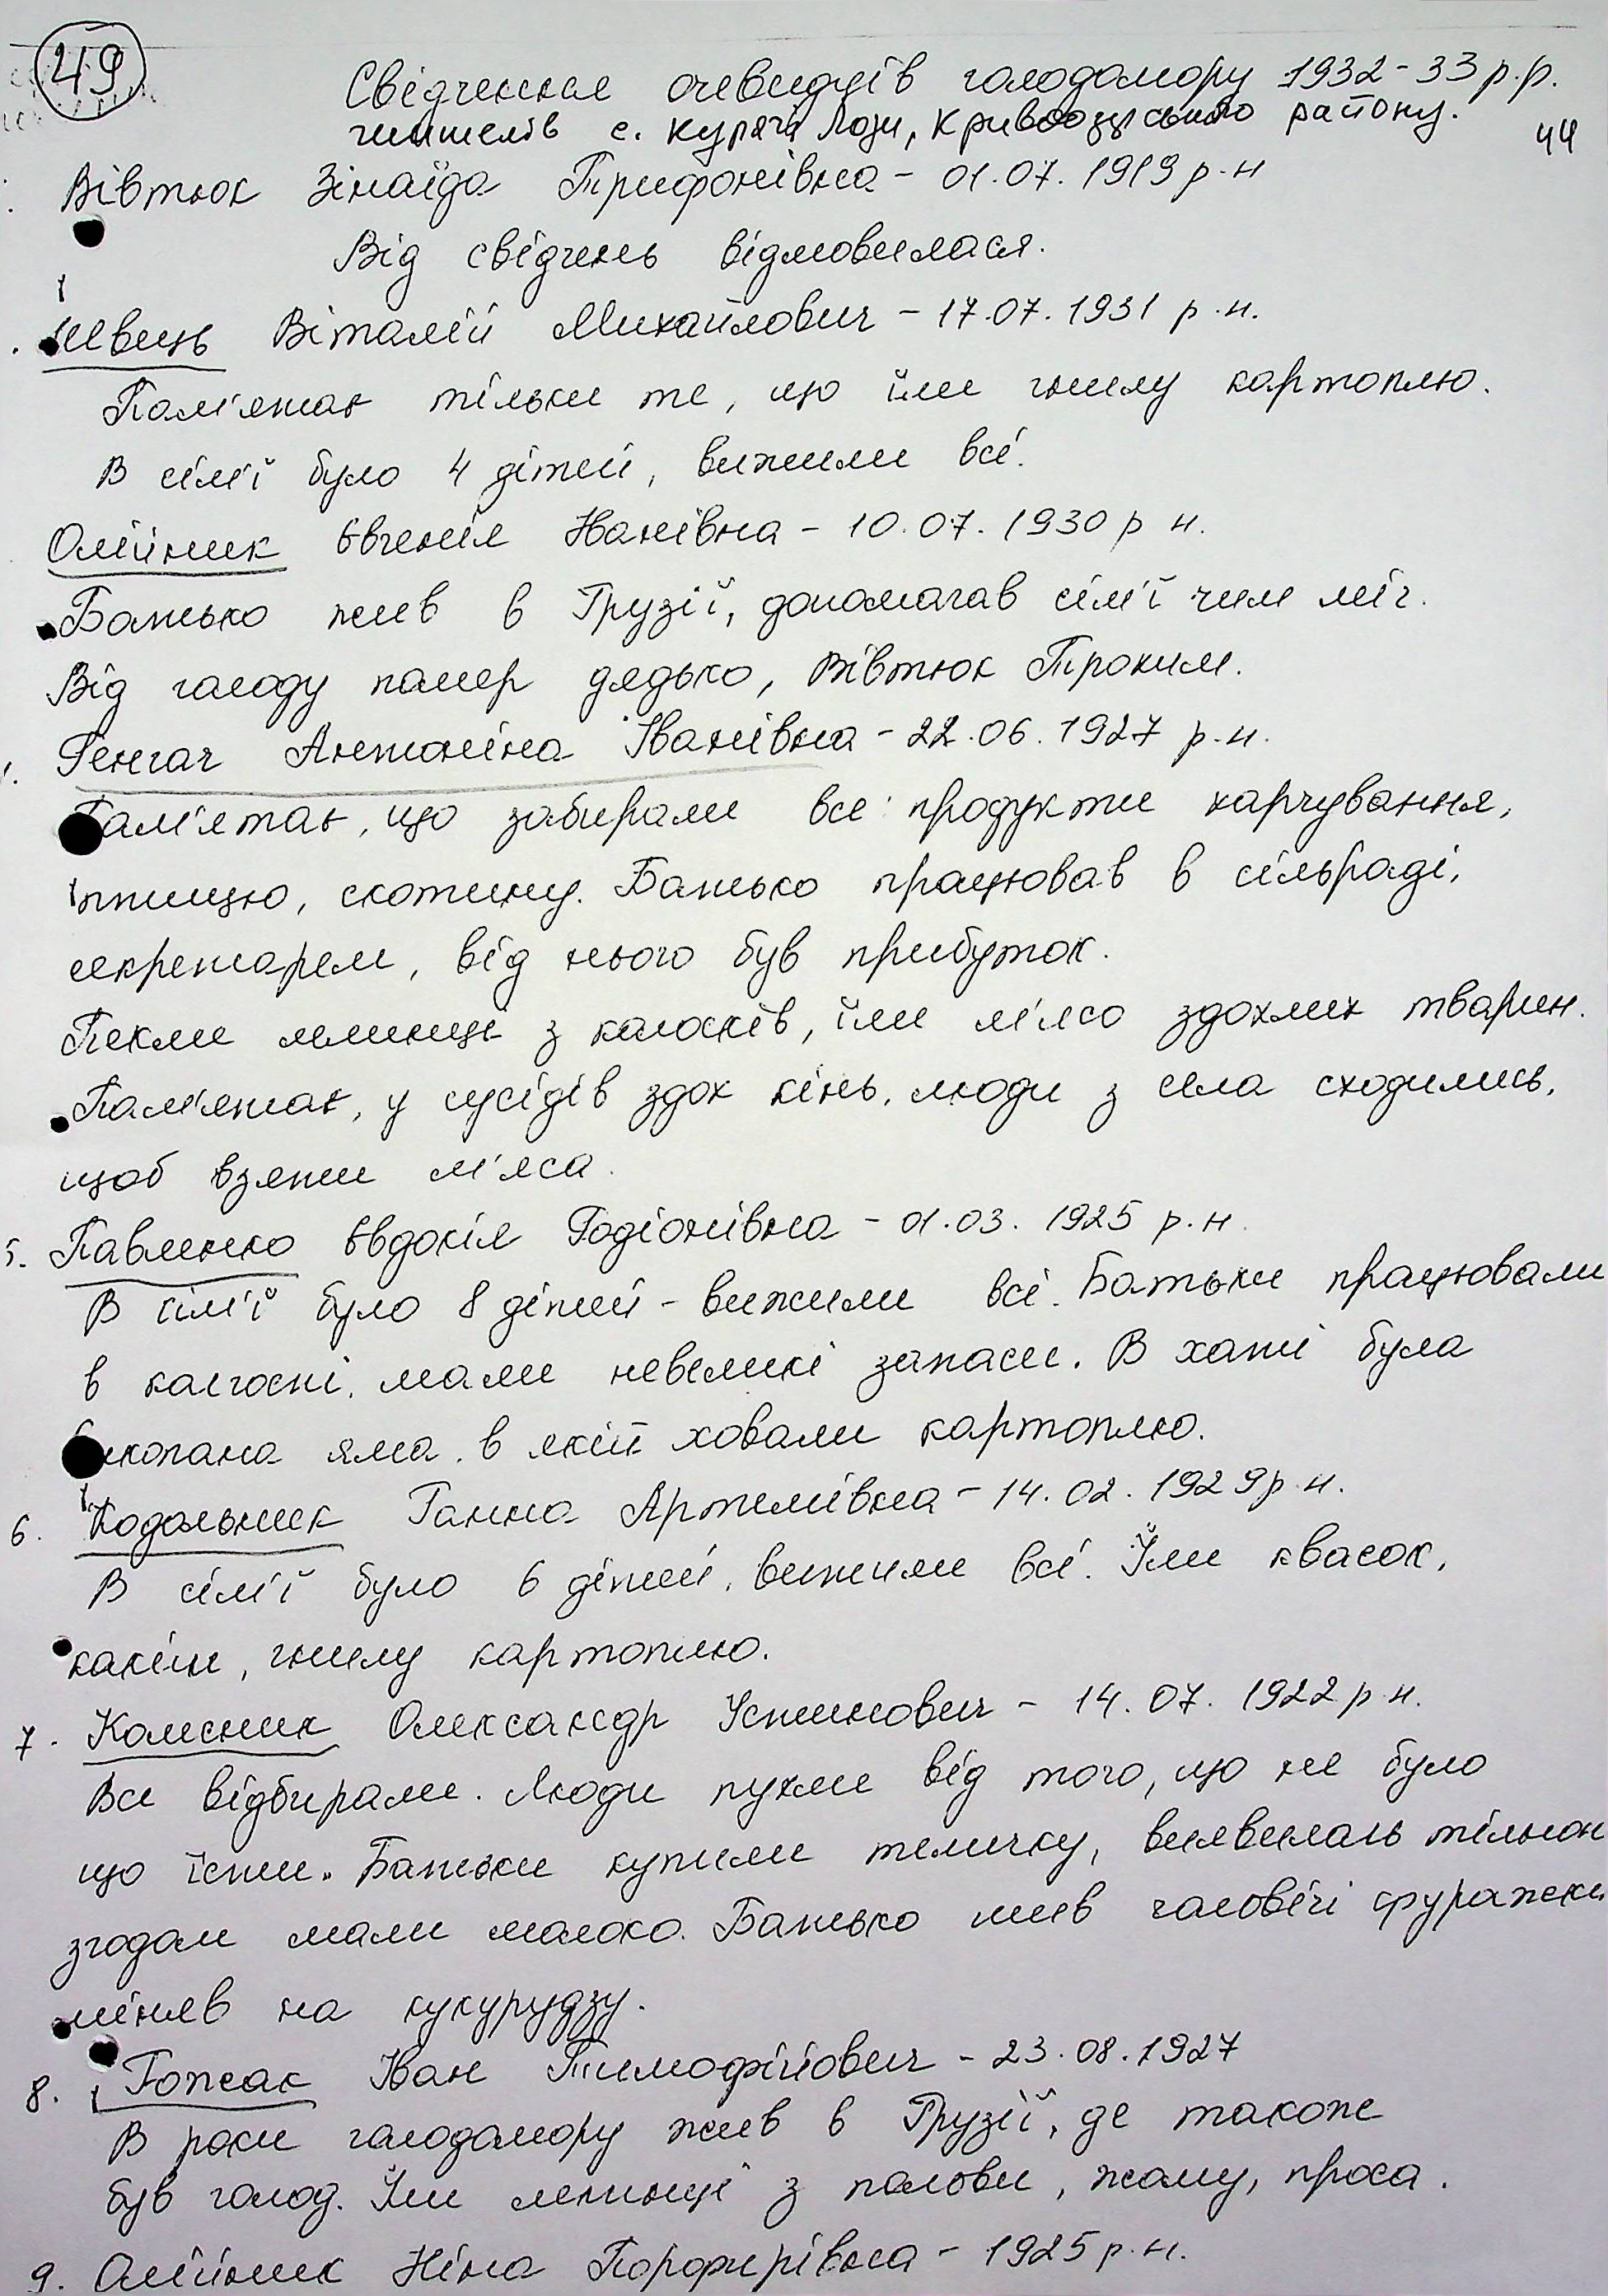 49
Свідчення очевидців голодомору 1932-33 р.р.
жителів с. Курячі Лози, Кривоозерського району.
44
Вівтюк Зінаїда Трифонівна - 01.07.1919 р.н
Від свідчень відмовилася.
Швець Віталій Михайлович - 17.07.1931 р.н.
Пам'ятає тільки те, що їли гнилу картоплю.
В сім'ї було 4 дітей, вижили всі.
Олійник Євгенія Іванівна - 10.07.1930 р н.
Батько жив в Грузії, допомагав сім'ї чим міг.
Від голоду помер дядько, Вівтюк Трохим.
Ренгач Антоніна Іванівна - 22.06.1927 р.н.
Пам'ятає, що забирали все: продукти харчування,
птицю, скотину. Батько працював в сільраді,
секретарем, від нього був прибуток.
Пекли млинці з колосків, їли м'ясо здохлих тварин.
Пам'ятає, у сусідів здох кінь, люди з села сходились,
щоб взяти м'яса.
5. Павленко Євдокія Родіонівна - 01.03.1925 р.н.
В сім'ї було 8 дітей - вижили всі. Батьки працювали
в колгоспі, мали невеликі запаси. В хаті була
викопана яма, в якій ховали картоплю.
6. Кодольник Ганна Артемівна - 14.02.1929 р.н.
В сім'ї було 6 дітей, вижили всі. Їли квасок,
качіни, гнилу картоплю.
7. Колесник Олександр Устинович - 14.07.1922 р.н.
Все відбирали. Люди пухли від того, що не було
що їсти. Батьки купили теличку, виявилась тільною
згодом мали молоко. Батько шив чоловічі фуражки
міняв на кукурудзу.
8. Гожак Іван Тимофійович - 23.08.1927
В роки голодомору жив в Грузії, де також
був голод. Їли млинці з полови, жому, проса.
9. Олійник Ніна Порфирівна - 1925 р.н.